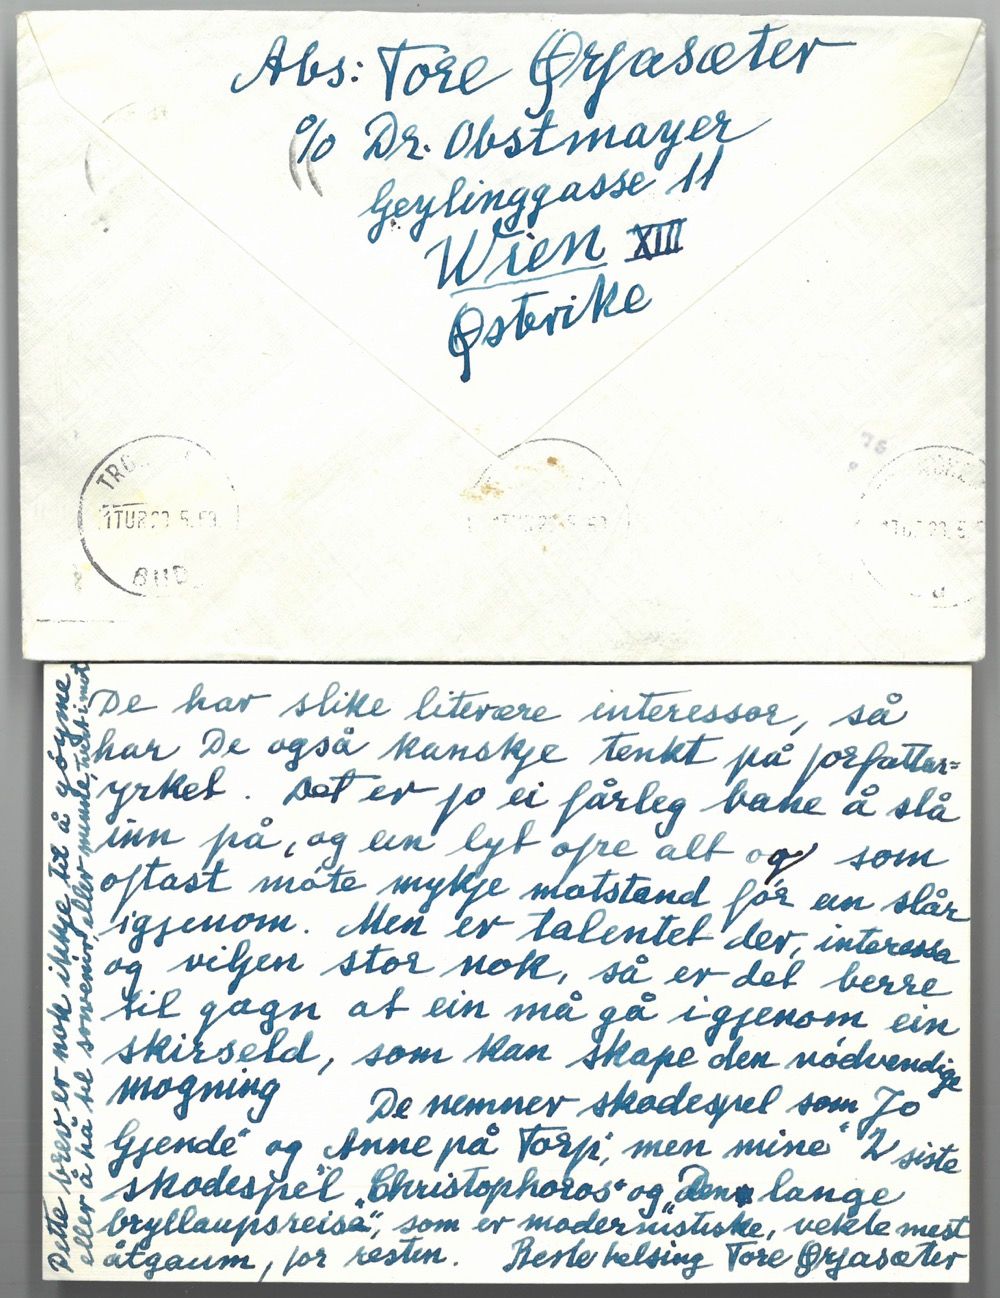 Abs: Tore Ørjasæter
c/o Dr. Obstmayer
Geylinggasse 11
Wien XIII
Østerike
1TUR 5.59
BUD
75
De har slike literære interessor, så
har De også kanskje tenkt på forfattar=
yrket. Det er jo ei fårleg bane å slå
inn på, og ein lyt ofre alt og som
oftast møte mykje motstand før ein slår
igjenom. Men er talentet der, interessa
og viljen stor nok, så er det berre
til gagn at ein må gå igjenom ein
skirseld, som kan skape den nødvendige
mogning De nemner skodespel som Jo
Gjende" og Anne på Torp", men mine 2 siste
skodespel „Christophoros" og „Den lange
bryllaupsreisa", som er modernistiske, vekte mest
åtgaum, for resten. Beste helsing Tore Ørjasæter
Dette brev er nok ikkje til å gøyme
eller å ha til souvenir, eller minnle, tvert imot